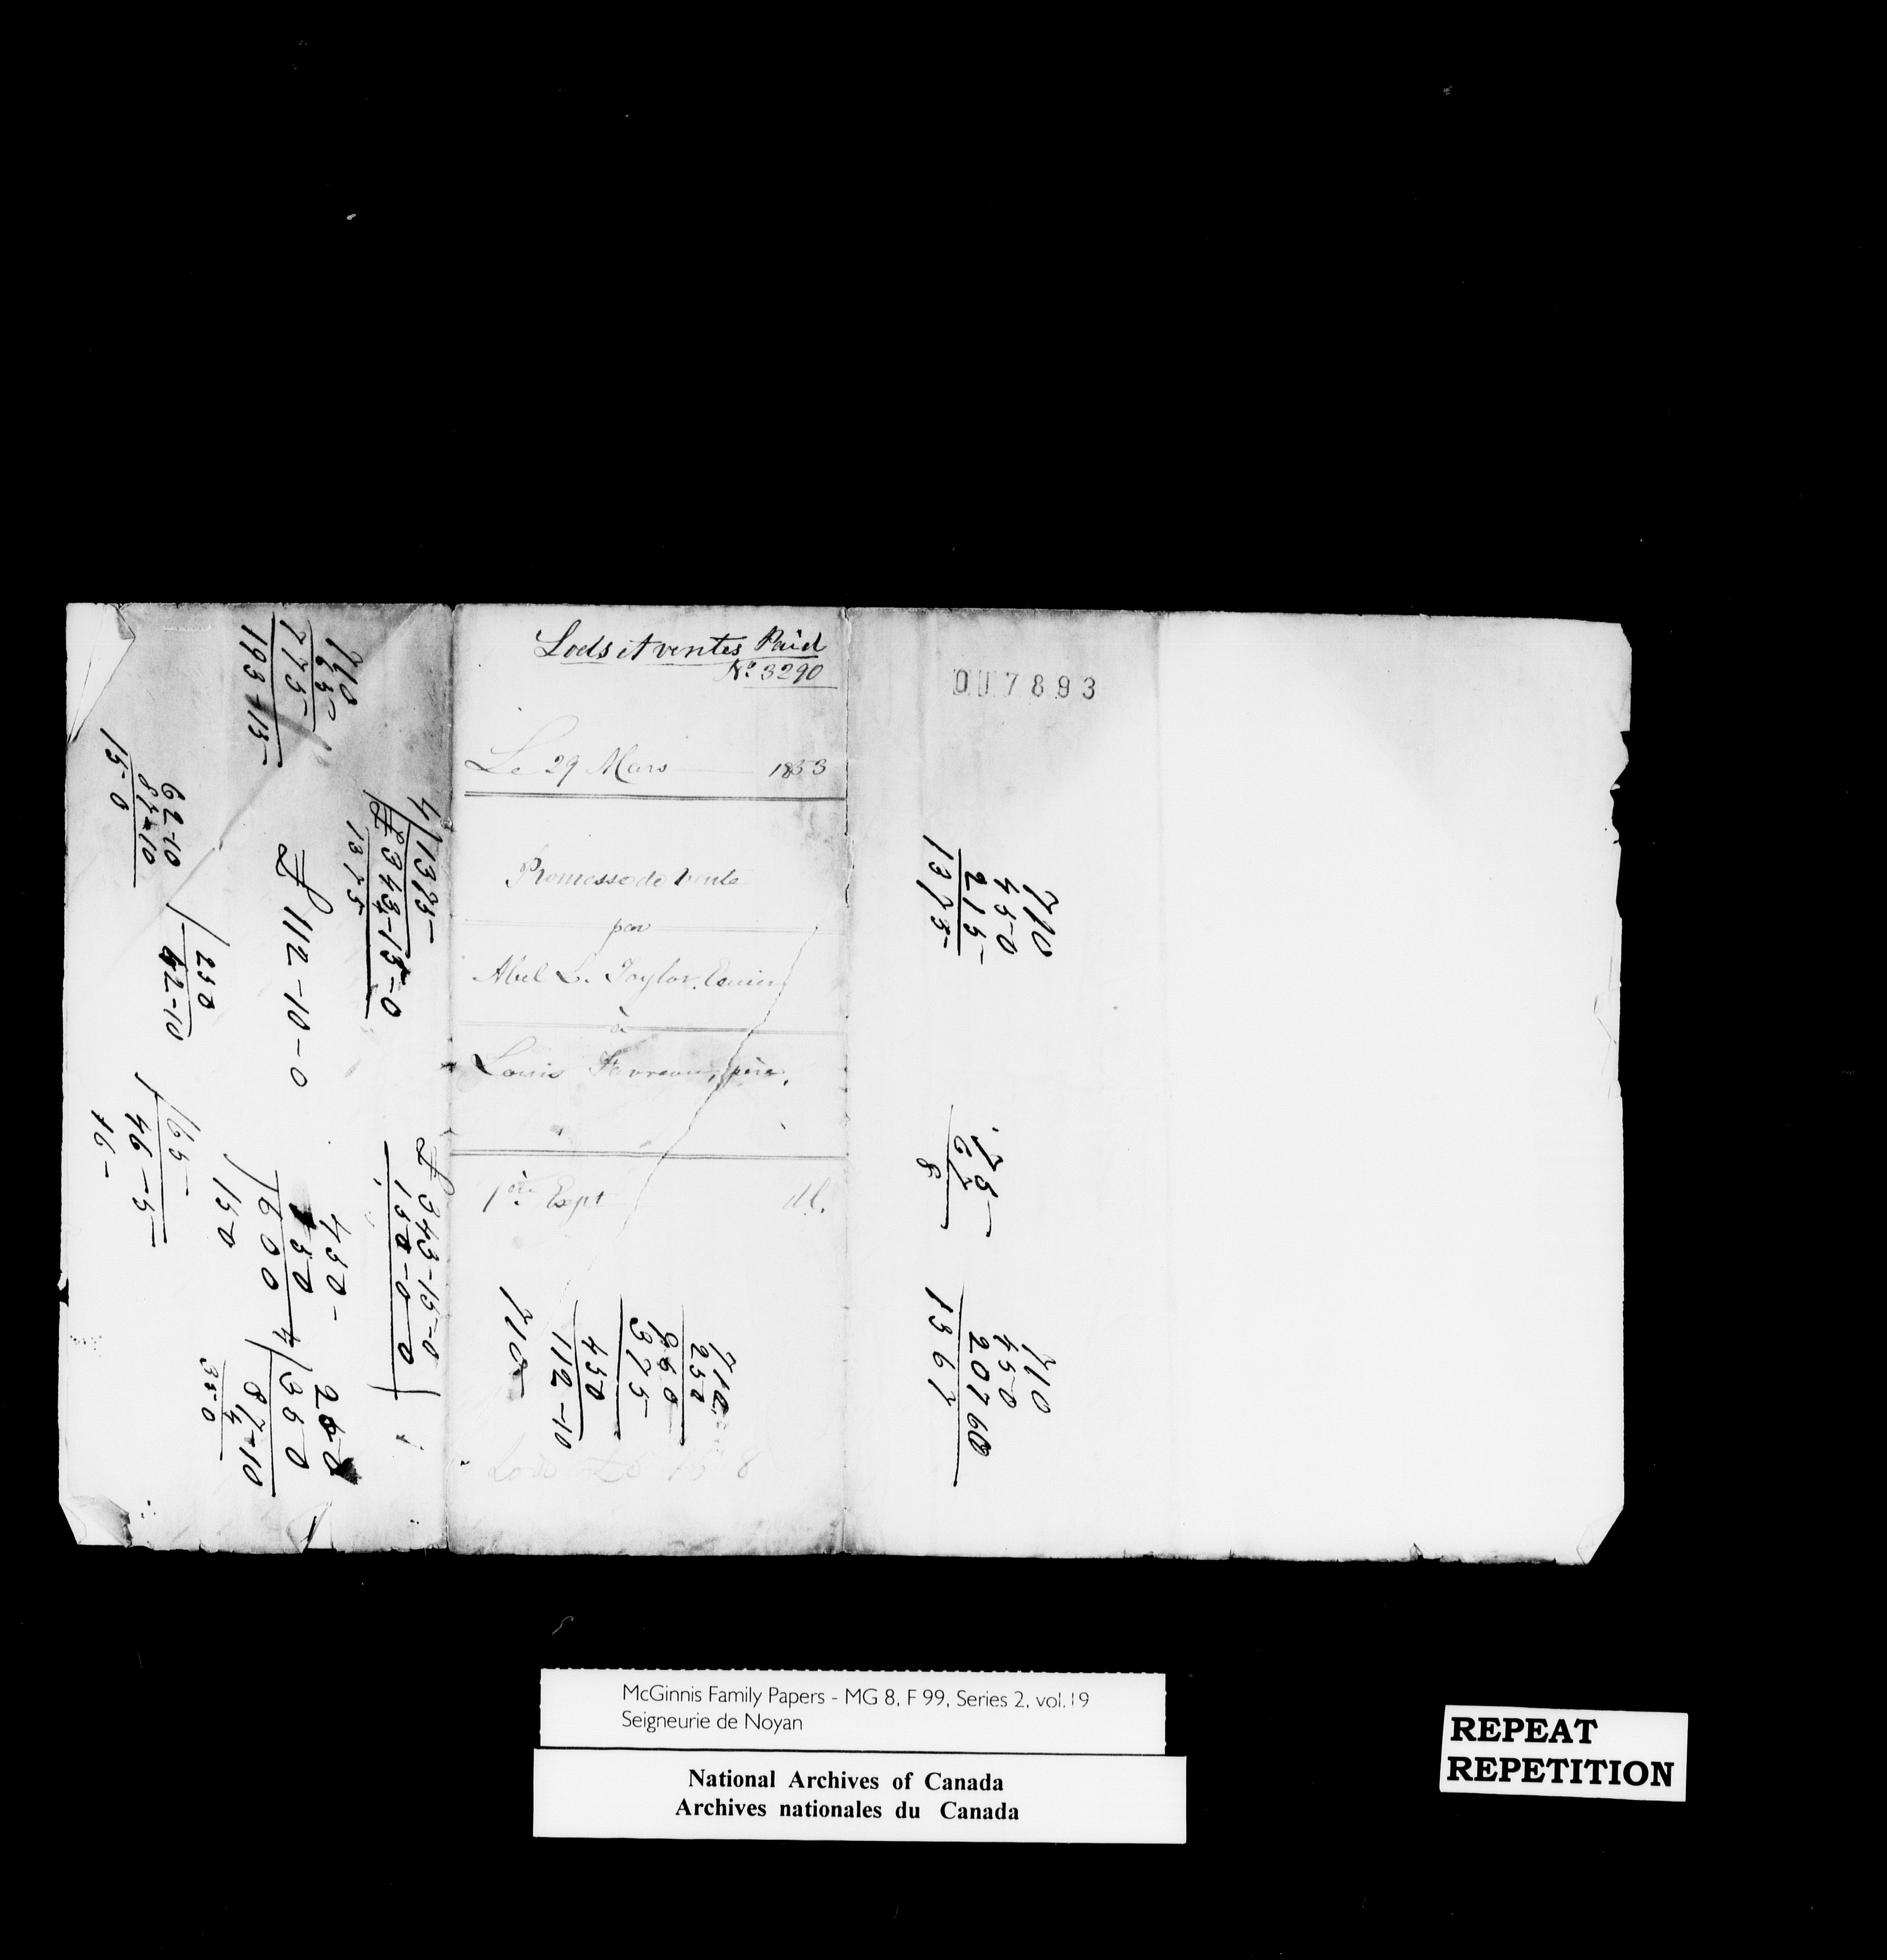 Lods et ventes Paid
No. 3290
Le 29 Mars 1853
Promesse de Vente
par
Abel L. Taylor, Ecuier
à
Louis Favreau, père,
1ère Expn
710
250
960
375
450
112-10
710
Lods
007893
710
450
215
1375
75
67
8
710
450
207
1367
710
65
775
193-15
4)1375
£343-15-0
1375
£112-10-0
62-10
87-10
15-0
250
62-10
£343-15-0
150-0-0
450-
150
600
150
4)350
87-10
4
350
46-5-
16-
McGinnis Family Papers - MG 8, F 99, Series 2, vol.19
Seigneurie de Noyan
National Archives of Canada
Archives nationales du Canada
REPEAT
REPETITION